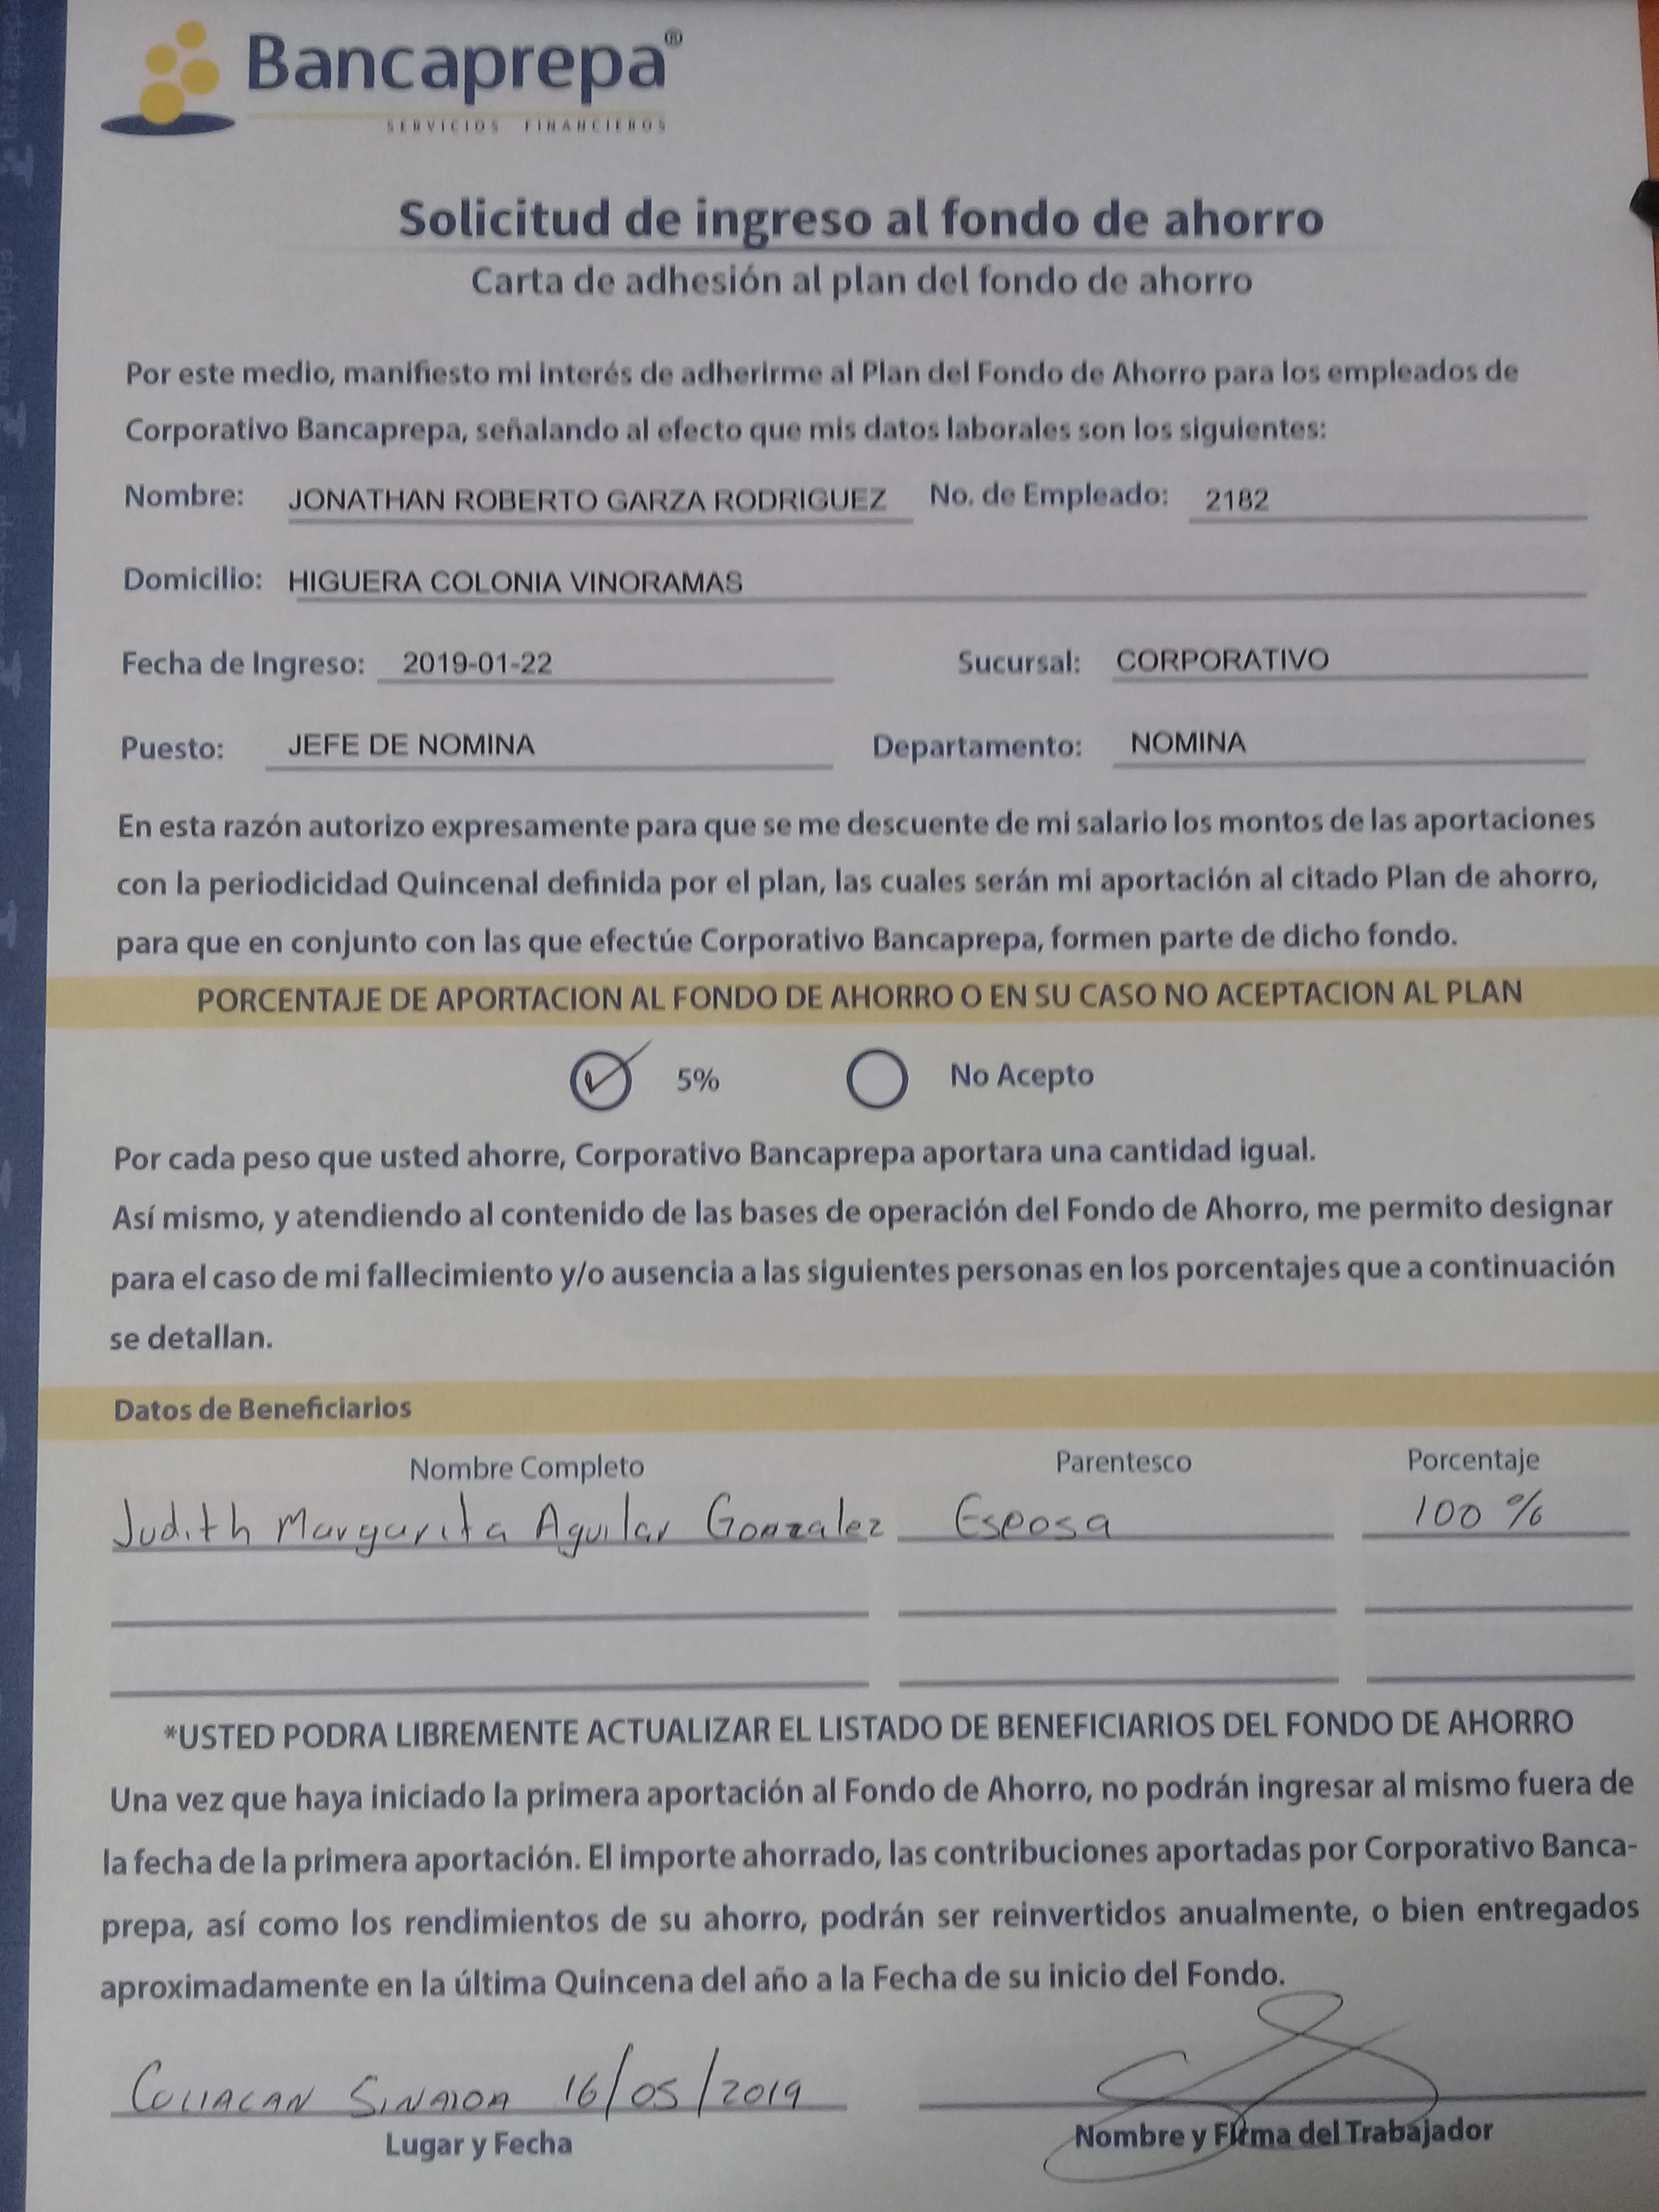 Bancaprepa®
SERVICIOS FINANCIEROS
Solicitud de ingreso al fondo de ahorro
Carta de adhesión al plan del fondo de ahorro
Por este medio, manifiesto mi interés de adherirme al Plan del Fondo de Ahorro para los empleados de
Corporativo Bancaprepa, señalando al efecto que mis datos laborales son los siguientes:
Nombre: JONATHAN ROBERTO GARZA RODRIGUEZ No. de Empleado: 2182
Domicilio: HIGUERA COLONIA VINORAMAS
Fecha de Ingreso: 2019-01-22 Sucursal: CORPORATIVO
Puesto: JEFE DE NOMINA Departamento: NOMINA
En esta razón autorizo expresamente para que se me descuente de mi salario los montos de las aportaciones
con la periodicidad Quincenal definida por el plan, las cuales serán mi aportación al citado Plan de ahorro,
para que en conjunto con las que efectúe Corporativo Bancaprepa, formen parte de dicho fondo.
PORCENTAJE DE APORTACION AL FONDO DE AHORRO O EN SU CASO NO ACEPTACION AL PLAN
5% No Acepto
Por cada peso que usted ahorre, Corporativo Bancaprepa aportara una cantidad igual.
Así mismo, y atendiendo al contenido de las bases de operación del Fondo de Ahorro, me permito designar
para el caso de mi fallecimiento y/o ausencia a las siguientes personas en los porcentajes que a continuación
se detallan.
Datos de Beneficiarios
Nombre Completo Parentesco Porcentaje
Judith Margarita Aguilar Gonzalez Esposa 100 %
*USTED PODRA LIBREMENTE ACTUALIZAR EL LISTADO DE BENEFICIARIOS DEL FONDO DE AHORRO
Una vez que haya iniciado la primera aportación al Fondo de Ahorro, no podrán ingresar al mismo fuera de
la fecha de la primera aportación. El importe ahorrado, las contribuciones aportadas por Corporativo Banca-
prepa, así como los rendimientos de su ahorro, podrán ser reinvertidos anualmente, o bien entregados
aproximadamente en la última Quincena del año a la Fecha de su inicio del Fondo.
CULIACAN SINALOA 16/05/2019
Lugar y Fecha Nombre y Firma del Trabajador